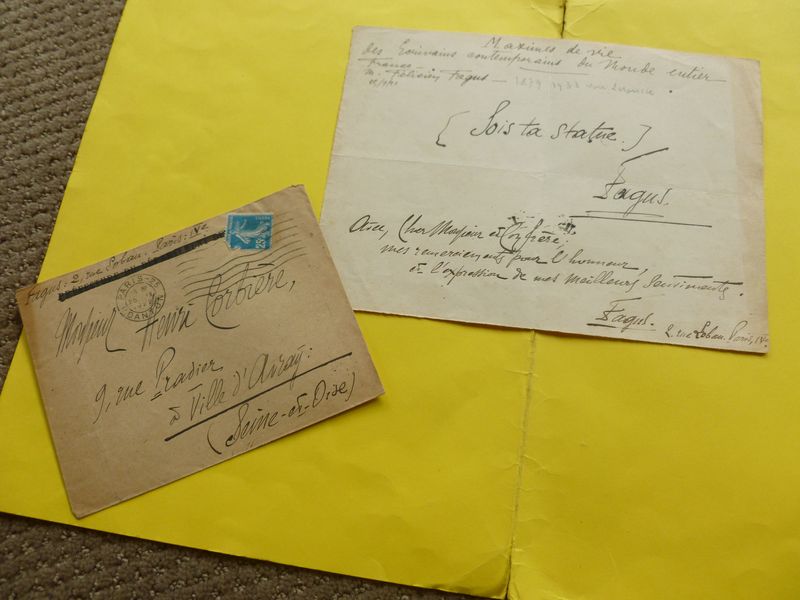 Fagus: 2, rue Loban. Paris: IVe
PARIS
DANTON
25c
Monsieur Henri Corbière,
9, rue Pradier
à Ville d'Avray:
(Seine-et-Oise)
Maximes de vie
des Ecrivains contemporains du Monde entier.
France —
M. Félicien Fagus —
[Sois ta statue.]
Fagus.
Avec, Cher Monsieur et Confrère,
mes remerciements pour l'honneur,
et l'expression de mes meilleurs sentiments.
Fagus.
2, rue Loban. Paris, IVe